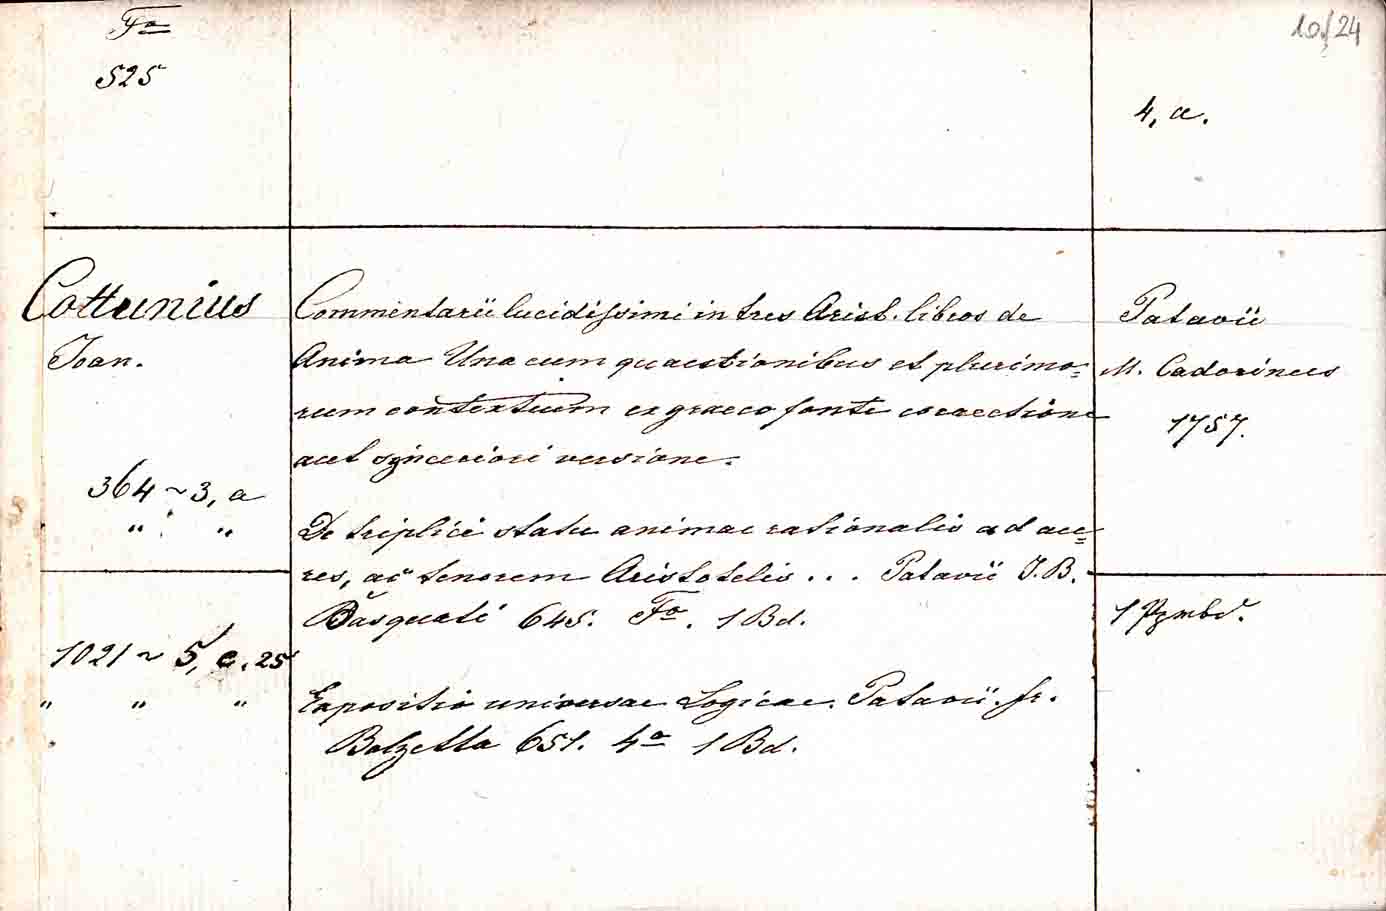 Fo
525
10./24
4, a.
Cottunius
Joan.
Commentarii lucidissimi in tres Arist. libros de
Anima Una cum quaestionibus et plurimo=
rum contextuum ex graeco fonte correctione
aut synceriori versione.
Patavii
M. Cadorinus
1757.
364 ~ 3, a
" "
De triplici statu animae rationalis ad au=
res, ac tenorem Aristotelis . . . Patavii J. B.
Pasquati 645. Fo. 1 Bd.
1 Pgmbd.
1021 ~ 5, c. 25
" " "
Expositio universae Logicae. Patavii. fr.
Bolzetta 651. 4o 1 Bd.